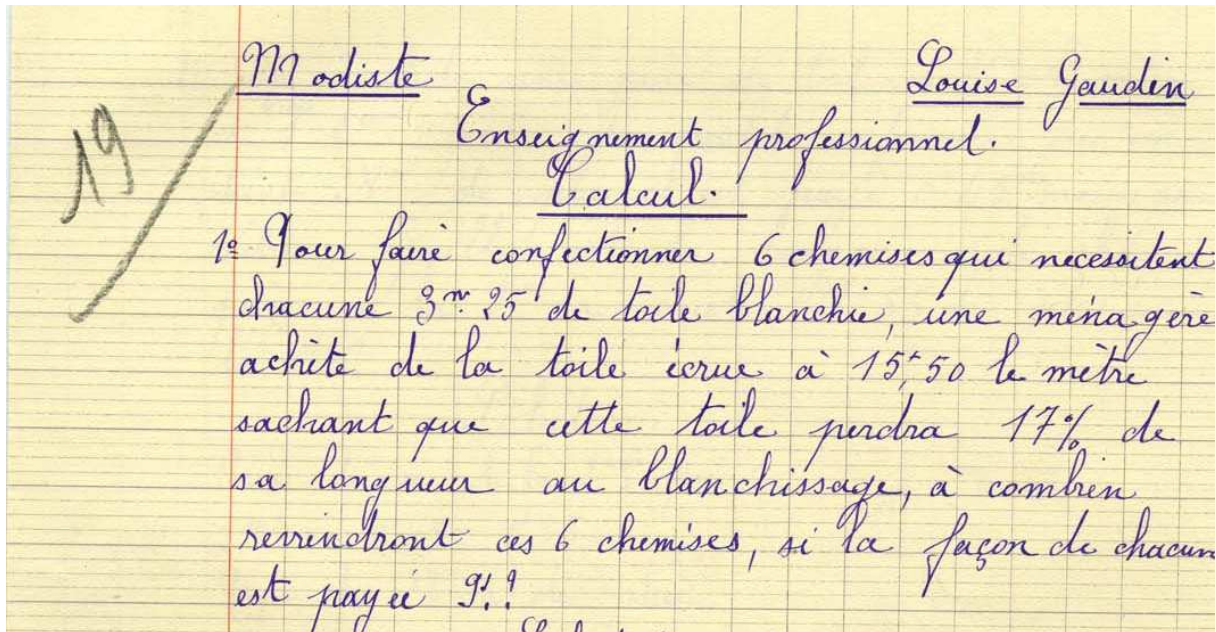 Modiste Louise Gaudin
19
Enseignement professionnel.
Calcul.
1º Pour faire confectionner 6 chemises qui necessitent
chacune 3m.25 de toile blanchie, une ménagère
achète de la toile écrue à 15f,50 le mètre
sachant que cette toile perdra 17% de
sa longueur au blanchissage, à combien
reviendront ces 6 chemises, si la façon de chacun
est payée 9f.?